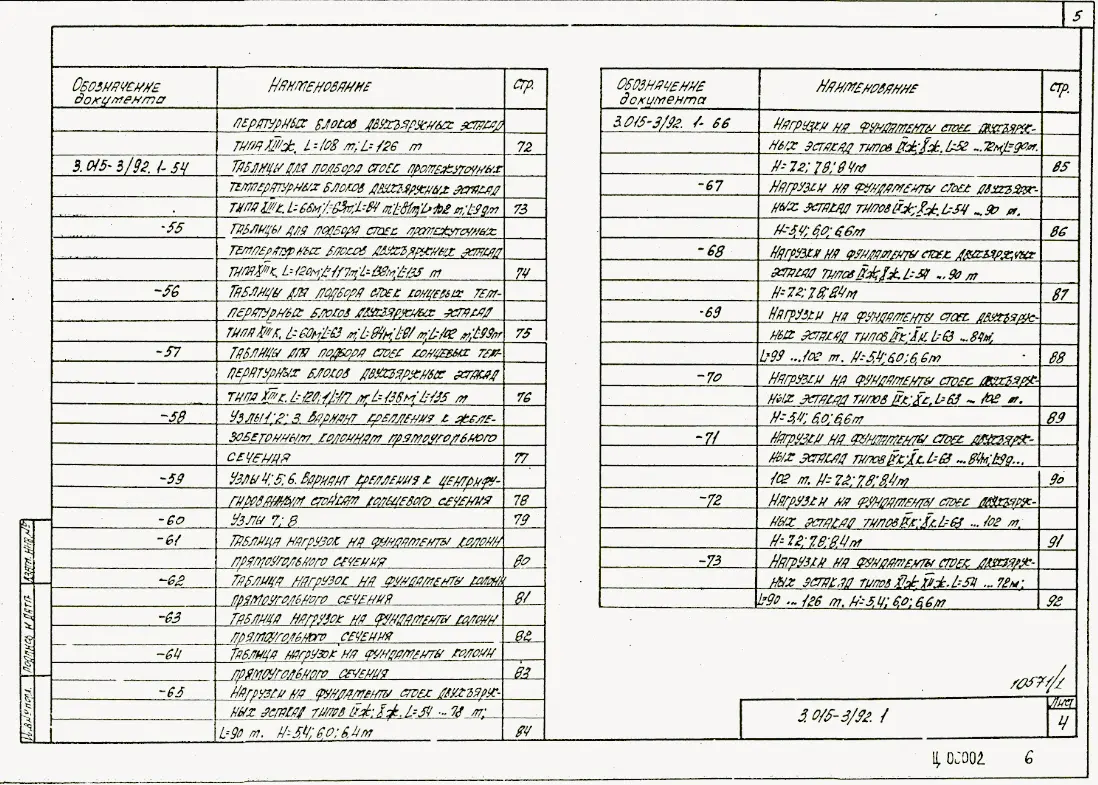 5
Обозначение документа Наименование стр.
пературных блоков двухъярусных эстакад
типа XIIIж. L=108 m; L=126 m 72
3.015-3/92.1-54 Таблицы для подбора стоек промежуточных
температурных блоков двухъярусных эстакад
типа XIIIк. L=66м; L=63m; L=84 m; L=81m; L=102 m; L=99m 73
-55 Таблицы для подбора стоек промежуточных
температурных блоков двухъярусных эстакад
типа XIIIк. L=120м; L=117m; L=138м; L=135 m 74
-56 Таблицы для подбора стоек концевых тем-
пературных блоков двухъярусных эстакад
типа XIIIк. L=60м; L=63 m; L=84м; L=81 m; L=102 m; L=99m 75
-57 Таблицы для подбора стоек концевых тем-
пературных блоков двухъярусных эстакад
типа XIIIк. L=120; L=117 m; L=138м; L=135 m 76
-58 Узлы 1; 2; 3. Вариант крепления к желе-
зобетонным колоннам прямоугольного
сечения 77
-59 Узлы 4; 5; 6. Вариант крепления к центрифу-
гированным стойкам кольцевого сечения 78
-60 Узлы 7; 8 79
-61 Таблица нагрузок на фундаменты колонн
прямоугольного сечения 80
-62 Таблица нагрузок на фундаменты колонн
прямоугольного сечения 81
-63 Таблица нагрузок на фундаменты колонн
прямоугольного сечения 82
-64 Таблица нагрузок на фундаменты колонн
прямоугольного сечения 83
-65 Нагрузки на фундаменты стоек двухъярус-
ных эстакад типов IXж; Xж. L=54 ... 78 m;
L=90 m. H=5,4; 6,0; 6,4m 84
Обозначение документа Наименование стр.
3.015-3/92.1-66 Нагрузки на фундаменты стоек двухъярус-
ных эстакад типов IXж; Xж. L=52 ... 72м; L=90m.
H=7.2; 7,8; 8.4m 85
-67 Нагрузки на фундаменты стоек двухъярус-
ных эстакад типов IXж; Xж. L=54 ... 90 m.
H=5,4; 6,0; 6,6m 86
-68 Нагрузки на фундаменты стоек двухъярусных
эстакад типов IXж; Xж. L=54 ... 90 m
H=7.2; 7,8; 8,4m 87
-69 Нагрузки на фундаменты стоек двухъярус-
ных эстакад типов IXк; Xк. L=63 ... 84m,
L=99 ... 102 m. H=5,4; 6,0; 6,6m 88
-70 Нагрузки на фундаменты стоек двухъярус-
ных эстакад типов IXк; Xк. L=63 ... 102 m.
H=5,4; 6,0; 6,6m 89
-71 Нагрузки на фундаменты стоек двухъярус-
ных эстакад типов IXк; Xк. L=63 ... 84м; L=99...
102 m. H=7.2; 7,8; 8,4m 90
-72 Нагрузки на фундаменты стоек двухъярус-
ных эстакад типов IXк; Xк. L=63 ... 102 m;
H=7.2; 7,8; 8,4m 91
-73 Нагрузки на фундаменты стоек двухъярус-
ных эстакад типов XIж; XIIж. L=54 ... 72м;
L=90 ... 126 m. H=5,4; 6,0; 6,6m 92
Взам. инв. №
Подпись и дата
Инв. № подл.
10571/1
3.015-3/92.1
Лист
4
Ц 00002 6